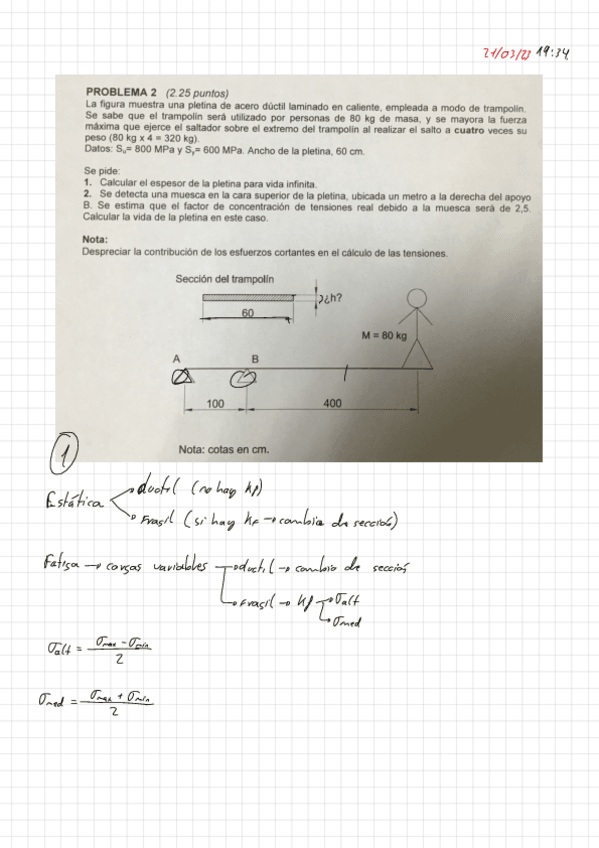 21/03/23 19:34
PROBLEMA 2 (2.25 puntos)
La figura muestra una pletina de acero dúctil laminado en caliente, empleada a modo de trampolín.
Se sabe que el trampolín será utilizado por personas de 80 kg de masa, y se mayora la fuerza
máxima que ejerce el saltador sobre el extremo del trampolín al realizar el salto a cuatro veces su
peso (80 kg x 4 = 320 kg).
Datos: Su= 800 MPa y Sy= 600 MPa. Ancho de la pletina, 60 cm.
Se pide:
1. Calcular el espesor de la pletina para vida infinita.
2. Se detecta una muesca en la cara superior de la pletina, ubicada un metro a la derecha del apoyo
B. Se estima que el factor de concentración de tensiones real debido a la muesca será de 2,5.
Calcular la vida de la pletina en este caso.
Nota:
Despreciar la contribución de los esfuerzos cortantes en el cálculo de las tensiones.
Sección del trampolín
¿h?
60
M = 80 kg
A B
100 400
Nota: cotas en cm.
1
Estática
ductil (no hay kf)
Fragil (si hay kf → cambia de sección)
Fatiga → cargas variables → ductil → cambio de sección
Fragil → kf → σalt
σmed
σalt = σmax - σmin / 2
σmed = σmax + σmin / 2